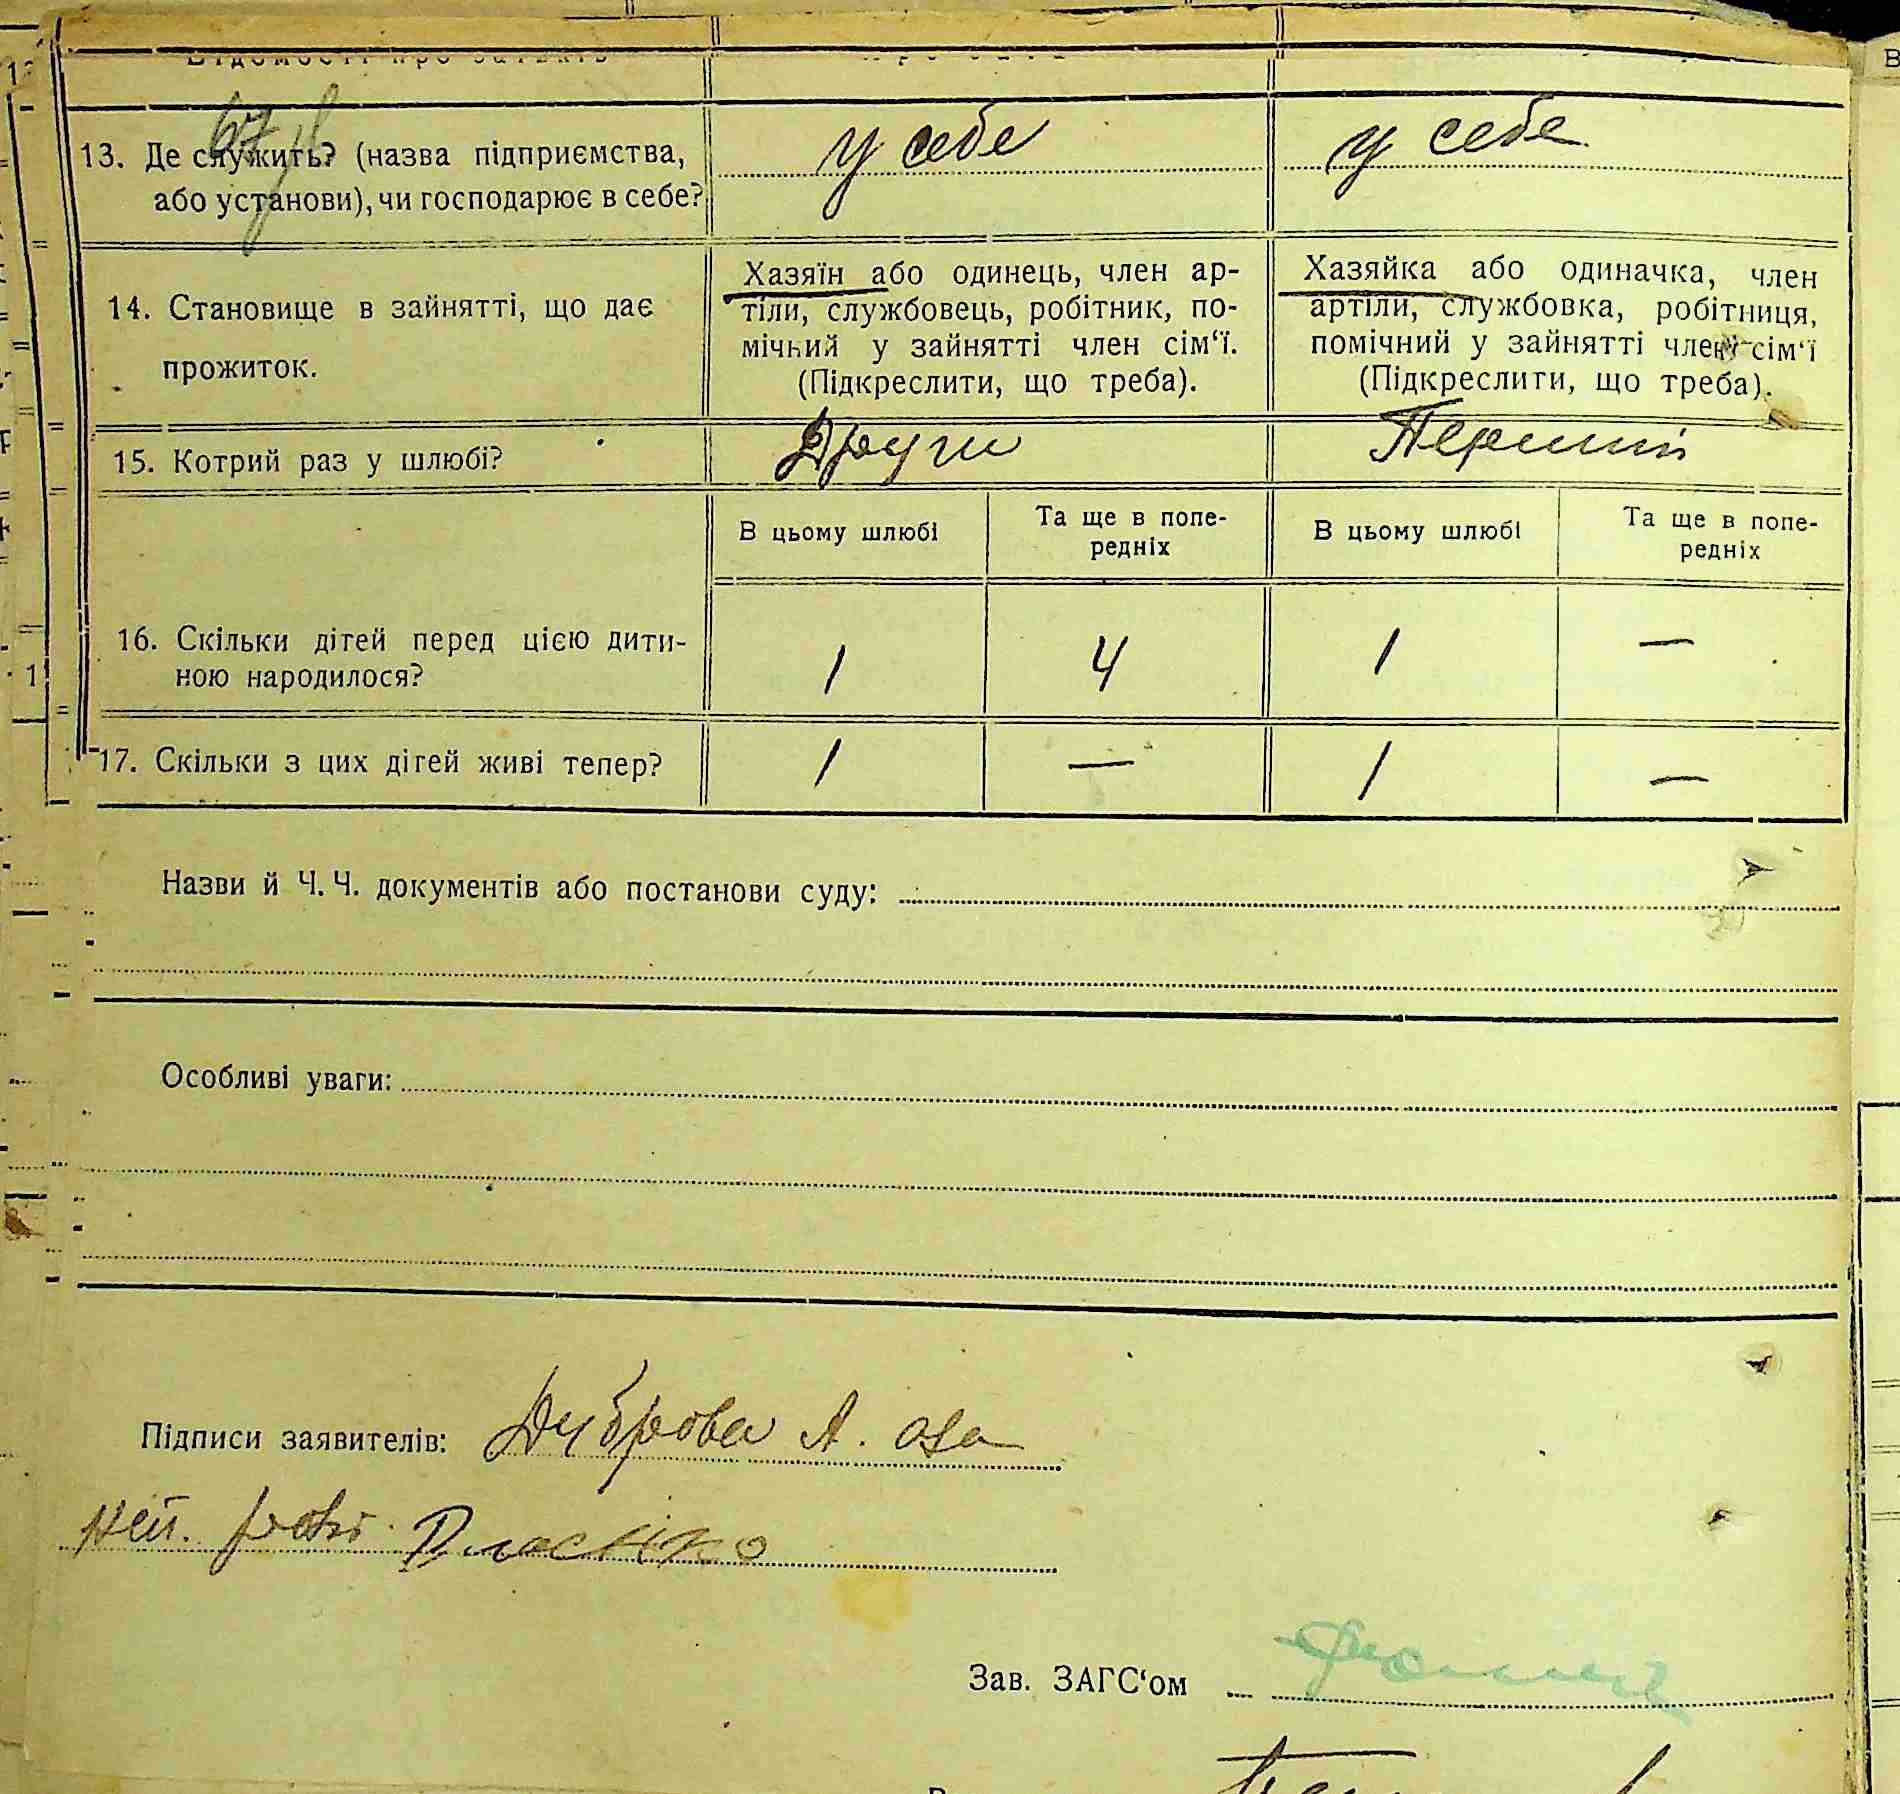 Відомості про батьків
13. Де служить? (назва підприємства, або установи), чи господарює в себе? у себе у себе
14. Становище в зайнятті, що дає прожиток.
Хазяїн або одинець, член ар-
тіли, службовець, робітник, по-
мічний у зайнятті член сім'ї.
(Підкреслити, що треба).
Хазяйка або одиначка, член
артіли, службовка, робітниця,
помічний у зайнятті член сім'ї
(Підкреслити, що треба).
15. Котрий раз у шлюбі? Други Перший
В цьому шлюбі
Та ще в попе-
редніх
В цьому шлюбі
Та ще в попе-
редніх
16. Скільки дітей перед цією дити-
ною народилося? 1 4 1 —
17. Скільки з цих дітей живі тепер? 1 — 1 —
Назви й Ч. Ч. документів або постанови суду:
Особливі уваги:
Підписи заявителів: Дуброва А.
Зав. ЗАГС'ом